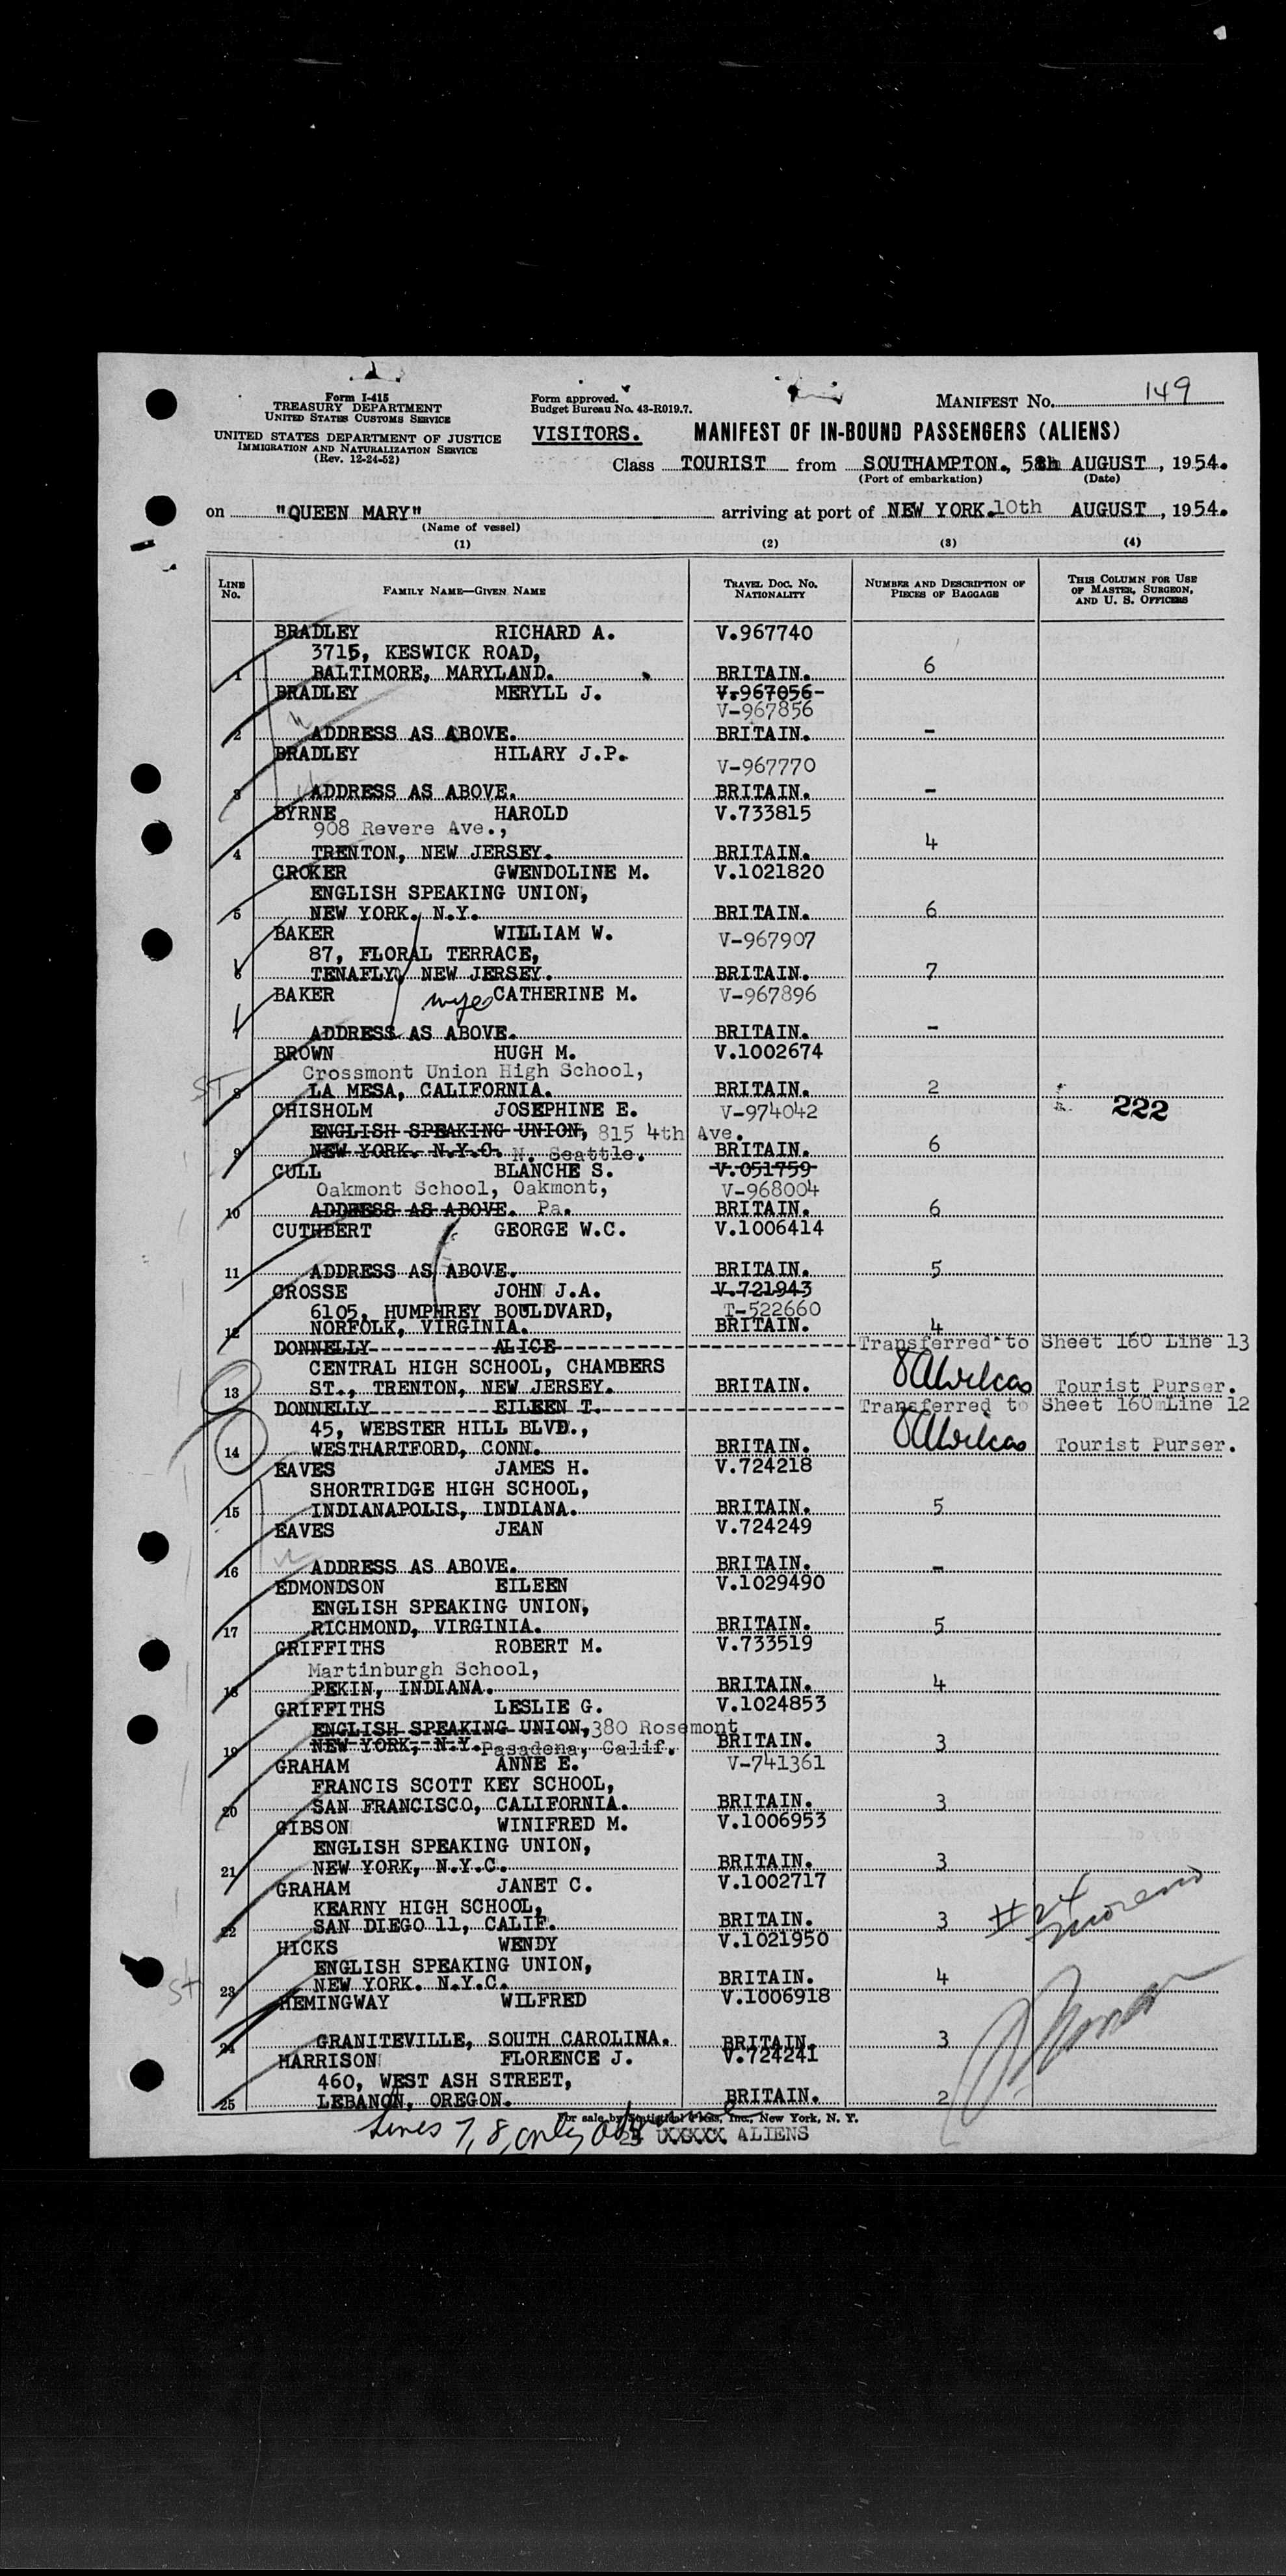 Form I-415
TREASURY DEPARTMENT
UNITED STATES CUSTOMS SERVICE
UNITED STATES DEPARTMENT OF JUSTICE
IMMIGRATION AND NATURALIZATION SERVICE
(Rev. 12-24-52)
Form approved.
Budget Bureau No. 43-R019.7.
MANIFEST No. 149
VISITORS. MANIFEST OF IN-BOUND PASSENGERS (ALIENS)
Class TOURIST from SOUTHAMPTON., 5th AUGUST, 1954.
(Port of embarkation) (Date)
on "QUEEN MARY" arriving at port of NEW YORK. 10th AUGUST, 1954.
(Name of vessel)
(1) (2) (3) (4)
LINE No. FAMILY NAME—GIVEN NAME TRAVEL DOC. No. NATIONALITY NUMBER AND DESCRIPTION OF PIECES OF BAGGAGE THIS COLUMN FOR USE OF MASTER, SURGEON, AND U. S. OFFICERS
BRADLEY RICHARD A. V.967740
3715, KESWICK ROAD,
1 BALTIMORE, MARYLAND. BRITAIN. 6
BRADLEY MERYLL J. V.967056-
V-967856
2 ADDRESS AS ABOVE. BRITAIN. -
BRADLEY HILARY J.P.
V-967770
3 ADDRESS AS ABOVE. BRITAIN. -
BYRNE HAROLD V.733815
908 Revere Ave.,
4 TRENTON, NEW JERSEY. BRITAIN. 4
CROKER GWENDOLINE M. V.1021820
ENGLISH SPEAKING UNION,
5 NEW YORK. N.Y. BRITAIN. 6
BAKER WILLIAM W. V-967907
87, FLORAL TERRACE,
6 TENAFLY, NEW JERSEY. BRITAIN. 7
BAKER wife CATHERINE M. V-967896
ADDRESS AS ABOVE. BRITAIN. -
BROWN HUGH M. V.1002674
Crossmont Union High School,
ST 8 LA MESA, CALIFORNIA. BRITAIN. 2
222
CHISHOLM JOSEPHINE E. V-974042
ENGLISH SPEAKING UNION, 815 4th Ave.
9 NEW YORK. N.Y.C. N. Seattle. BRITAIN. 6
CULL BLANCHE S. V.051759
Oakmont School, Oakmont, V-968004
10 ADDRESS AS ABOVE. Pa. BRITAIN. 6
CUTHBERT GEORGE W.C. V.1006414
11 ADDRESS AS ABOVE. BRITAIN. 5
CROSSE JOHN J.A. V.721943
6105, HUMPHREY BOULDVARD, T-522660
12 NORFOLK, VIRGINIA. BRITAIN. 4
DONNELLY ALICE Transferred to Sheet 160 Line 13
CENTRAL HIGH SCHOOL, CHAMBERS
13 ST., TRENTON, NEW JERSEY. BRITAIN. Tourist Purser.
DONNELLY EILEEN T. Transferred to Sheet 160 Line 12
45, WEBSTER HILL BLVD.,
14 WESTHARTFORD, CONN. BRITAIN. Tourist Purser.
EAVES JAMES H. V.724218
SHORTRIDGE HIGH SCHOOL,
15 INDIANAPOLIS, INDIANA. BRITAIN. 5
EAVES JEAN V.724249
16 ADDRESS AS ABOVE. BRITAIN. -
EDMONDSON EILEEN V.1029490
ENGLISH SPEAKING UNION,
17 RICHMOND, VIRGINIA. BRITAIN. 5
GRIFFITHS ROBERT M. V.733519
Martinburgh School,
18 PEKIN, INDIANA. BRITAIN. 4
GRIFFITHS LESLIE G. V.1024853
ENGLISH SPEAKING UNION, 380 Rosemont
19 NEW YORK, N.Y. Pasadena, Calif. BRITAIN. 3
GRAHAM ANNE E. V-741361
FRANCIS SCOTT KEY SCHOOL,
20 SAN FRANCISCO, CALIFORNIA. BRITAIN. 3
GIBSON WINIFRED M. V.1006953
ENGLISH SPEAKING UNION,
21 NEW YORK, N.Y.C. BRITAIN. 3
GRAHAM JANET C. V.1002717
KEARNY HIGH SCHOOL,
22 SAN DIEGO 11, CALIF. BRITAIN. 3 #24
HICKS WENDY V.1021950
ENGLISH SPEAKING UNION,
St 23 NEW YORK. N.Y.C. BRITAIN. 4
HEMINGWAY WILFRED V.1006918
24 GRANITEVILLE, SOUTH CAROLINA. BRITAIN. 3
HARRISON FLORENCE J. V.724241
460, WEST ASH STREET,
25 LEBANON, OREGON. BRITAIN. 2
For sale by Statistical Inc., New York, N. Y.
Lines 7, 8, only
23 ALIENS